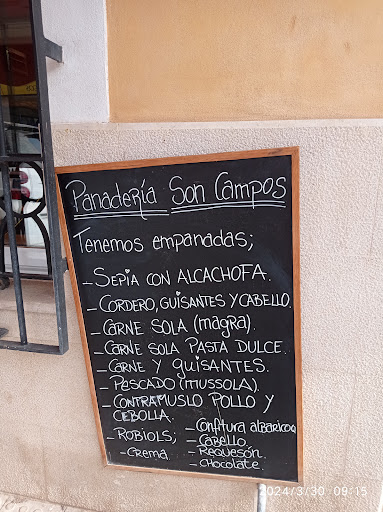 Panadería Son Campos
Tenemos empanadas;
- SEPIA CON ALCACHOFA.
- CORDERO, GUISANTES Y CABELLO.
- CARNE SOLA (magra).
- CARNE SOLA PASTA DULCE.
- CARNE Y GUISANTES.
- PESCADO (MUSSOLA).
- CONTRAMUSLO POLLO Y
CEBOLLA.
- ROBIOLS;
- CREMA.
- Confitura albaricoq
- CABELLO.
- REQUESÓN.
- CHOCOLATE.
2024/3/30 09:15